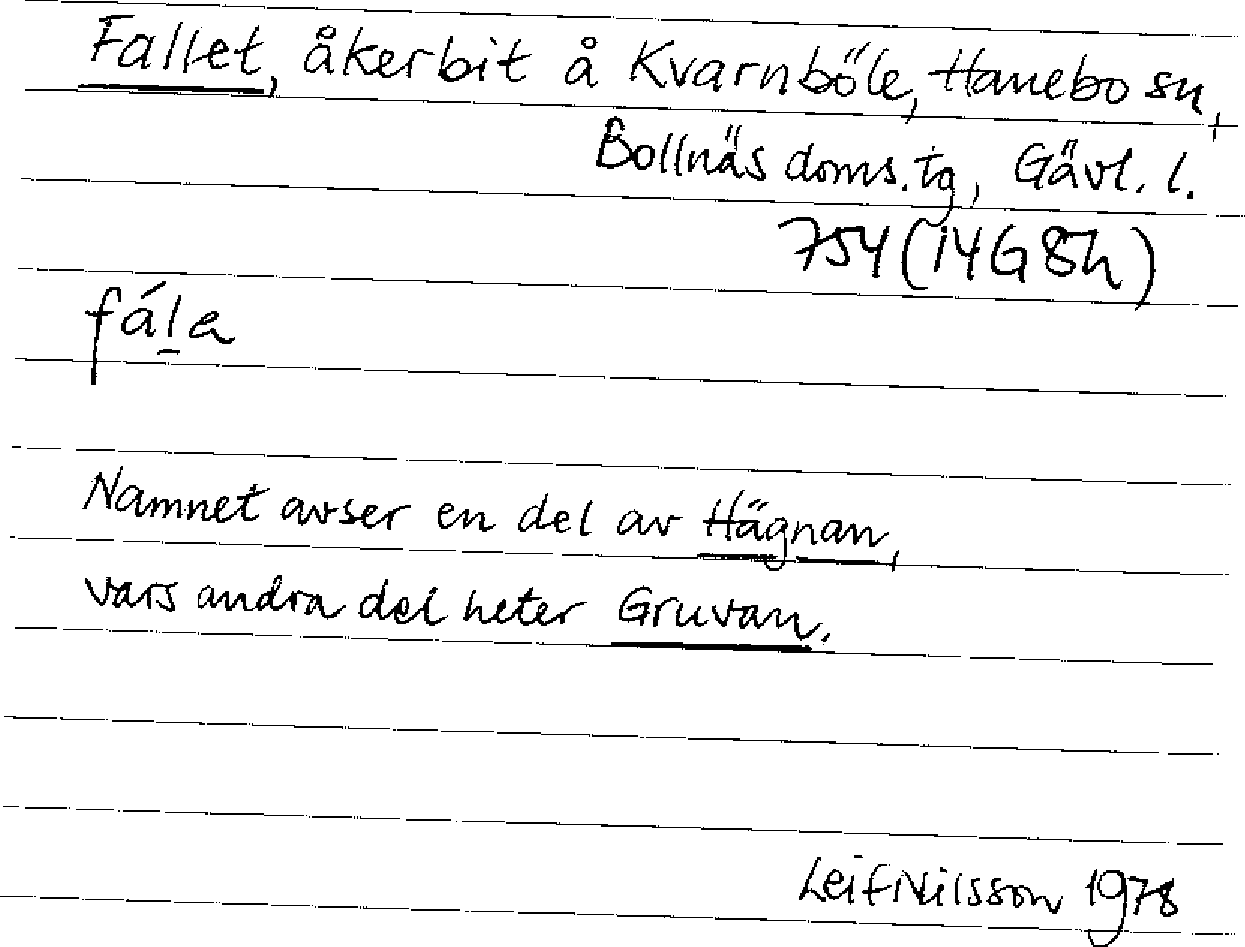 Fallet, åkerbit å Kvarnböle, Hanebo sn,
Bollnäs doms.tg, Gävl. l.
754 (14G 8h)
fál̲a
Namnet avser en del av Hägnan,
vars andra del heter Gruvan.
Leif Nilsson 1978